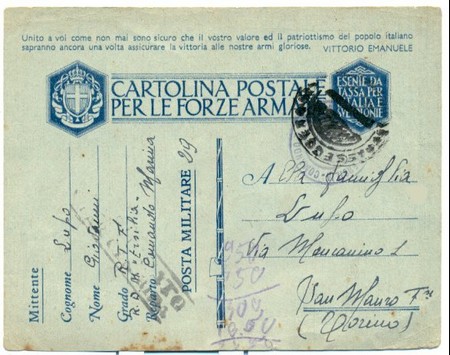 Unito a voi come non mai sono sicuro che il vostro valore ed il patriottismo del popolo italiano
sapranno ancora una volta assicurare la vittoria alle nostre armi gloriose. VITTORIO EMANUELE
CARTOLINA POSTALE
PER LE FORZE ARMA
ESENTE DA
TASSA PER
ITALIA E
Mittente
Cognome Lupo
Nome Giovanni
Grado R.T.F.
R.D.M. Ersilia
Reparto Comando Marina
POSTA MILITARE 29
Alla Famiglia
Lupo
Via Moncanino 1
San Mauro
(Torino)
950